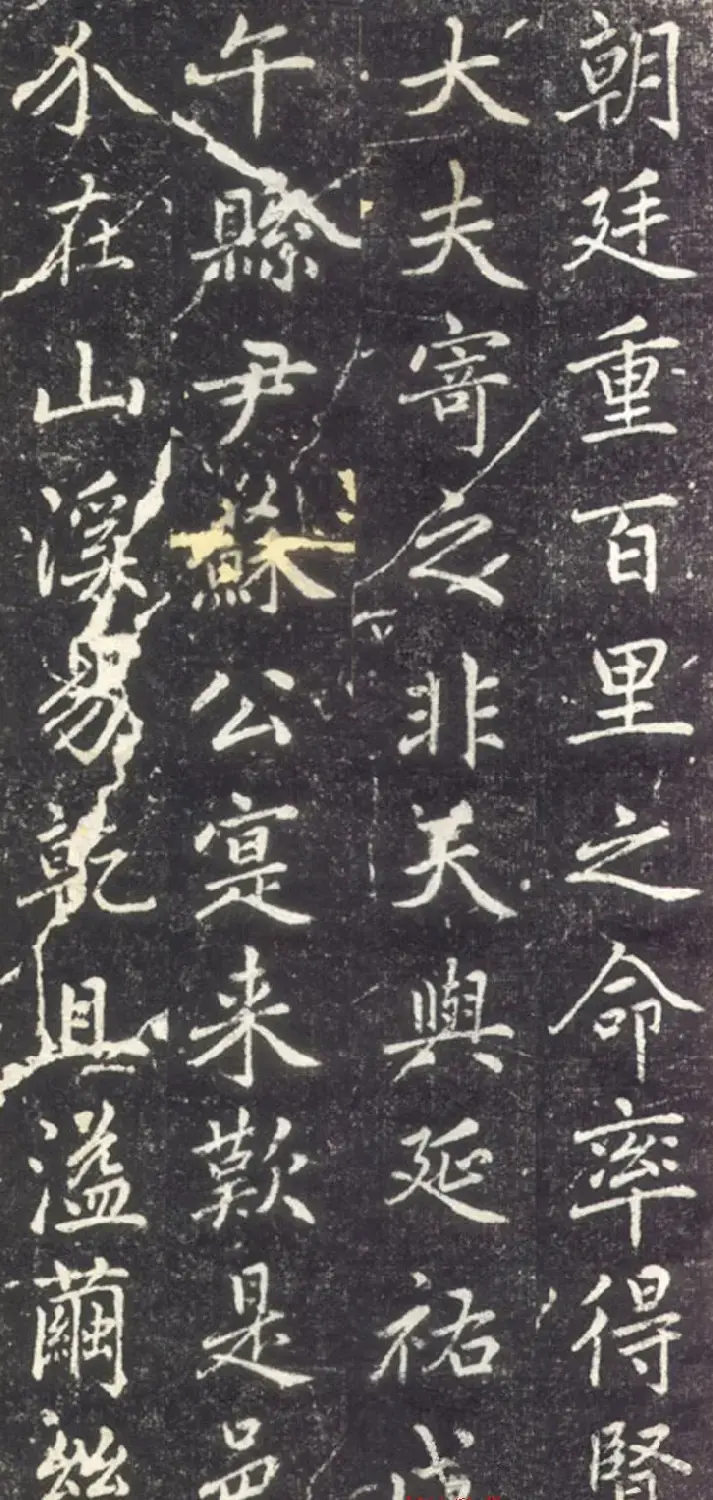 朝廷重百里之命率得賢
大夫寄之非天與延祐戊
午縣尹蘇公寔来歎是邑
介在山溪易乾且溢繭絲